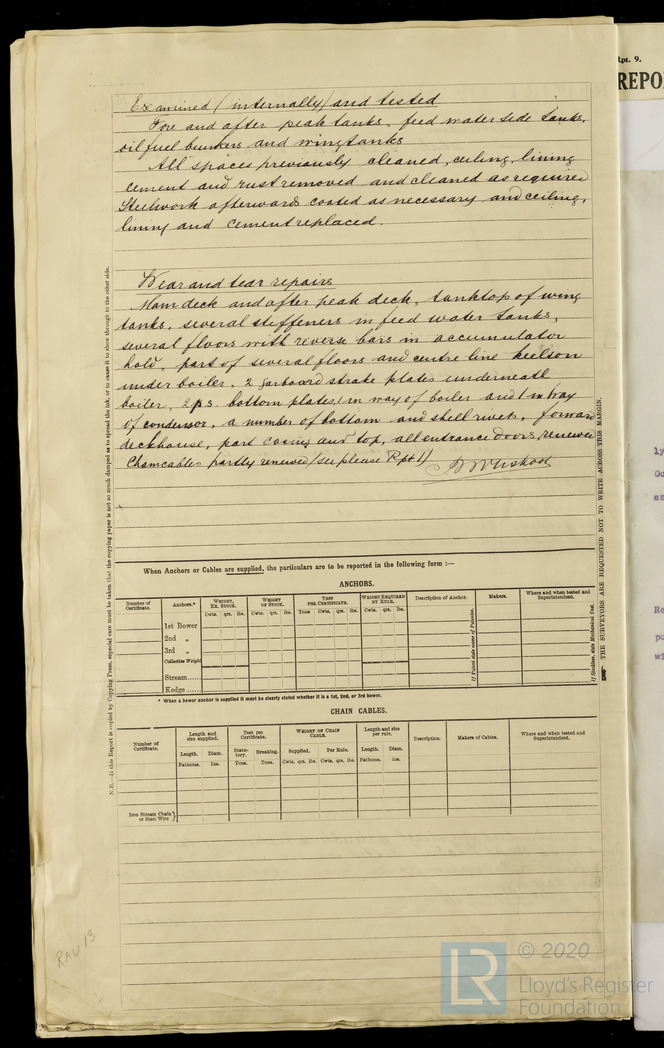 Examined (internally) and tested
Fore and after peak tanks, feed water side tanks,
oil fuel bunkers and wing tanks
All spaces previously cleaned, ceiling, lining
cement and rust removed and cleaned as required
Steelwork afterwards coated as necessary and ceiling,
lining and cement replaced.
Wear and tear repairs
Main deck and after peak deck, tanktop of wing
tanks, several stiffeners in feed water tanks,
several floors with reverse bars in accumulator
hold, part of several floors and centre line keelson
under boiler, 2 garboard strake plates underneath
boiler, 2 p.s. bottom plates, 1 in way of boiler and 1 in way
of condensor, a number of bottom and shell rivets, forward
deckhouse, part casing and top, all entrance doors, renewed
Chaincables partly renewed (see please Rpt 1)
When Anchors or Cables are supplied, the particulars are to be reported in the following form :—
ANCHORS.
Number of Certificate.
Anchors.*
WEIGHT, EX. STOCK.
WEIGHT OF STOCK.
TEST PER CERTIFICATE.
WEIGHT REQUIRED BY RULE.
Description of Anchor.
Makers.
Where and when tested and Superintendent.
Cwts. qrs. lbs.
Cwts. qrs. lbs.
Tons cwts. qrs. lbs.
Cwts. qrs. lbs.
1st Bower
2nd „
3rd „
Collective Weight
Stream......
Kedge......
If Patent state name of Patentee.
If Stockless, state Mechanical Test.
* When a bower anchor is supplied it must be clearly stated whether it is a 1st, 2nd, or 3rd bower.
CHAIN CABLES.
Number of Certificate.
Length and size supplied.
Test per Certificate.
WEIGHT OF CHAIN CABLE.
Length and size per rule.
Description.
Makers of Cables.
Where and when tested and Superintendent.
Length. Diam.
Statutory. Breaking.
Supplied. Per Rule.
Length. Diam.
Fathoms. Ins.
Tons. Tons.
Cwts. qrs. lbs. Cwts. qrs. lbs.
Fathoms. Ins.
Iron Stream Chain or Steel Wire }
N.B.—If this Report is copied by Copying Press, especial care must be taken that the copying paper is not so much damped as to spread the ink, or to cause it to show through to the other side.
THE SURVEYORS ARE REQUESTED NOT TO WRITE ACROSS THIS MARGIN.
RAU 13
Rpt. 9.
REPO
LR
© 2020
Lloyd's Register
Foundation